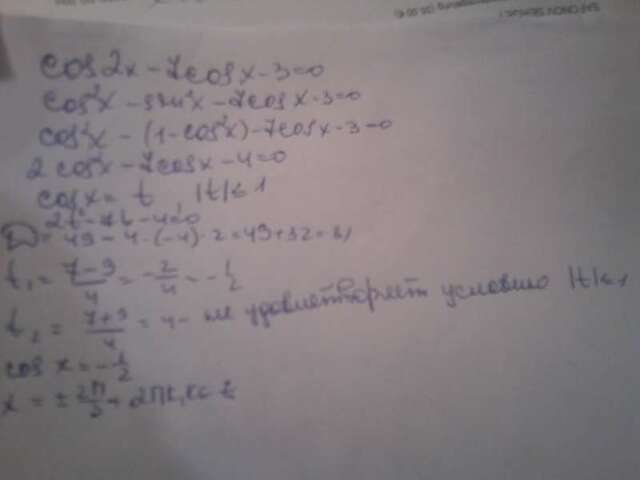 cos2x-7cosx-3=0
cos²x-sin²x-7cosx-3=0
cos²x-(1-cos²x)-7cosx-3=0
2cos²x-7cosx-4=0
cosx=t |t|≤1
2t²-7t-4=0
D=49-4·(-4)·2=49+32=81
t₁=(7-9)/4=-2/4=-1/2
t₂=(7+9)/4=4- не удовлетворяет условию |t|≤1
cosx=-1/2
x=±2π/3+2πk, k∈Z